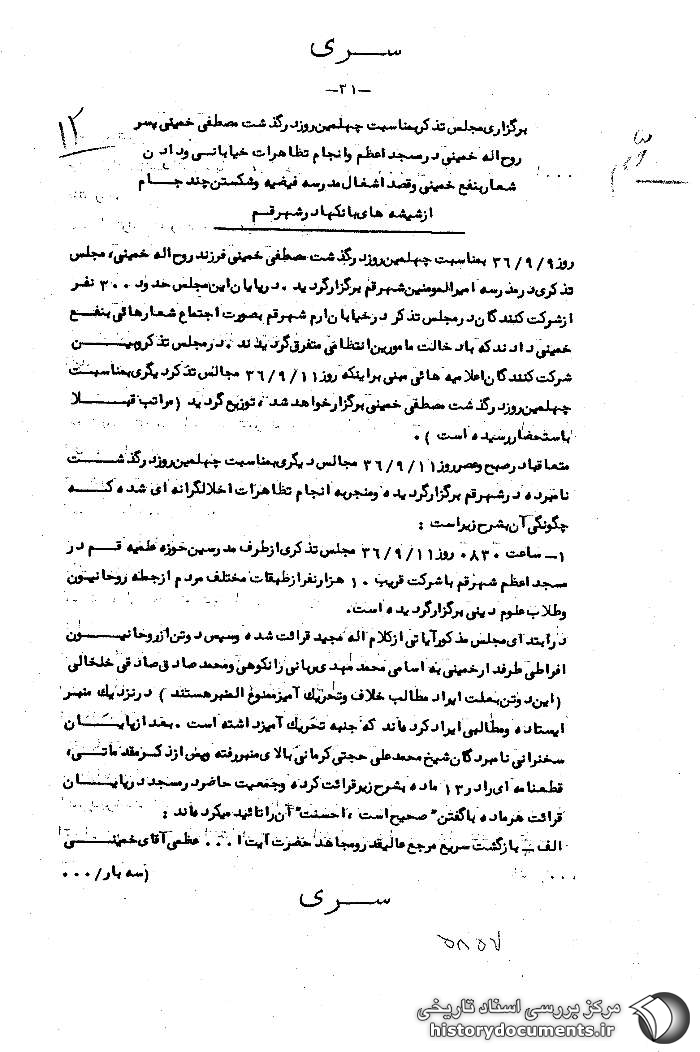 ســری
-۲۱-
۱۲
برگزاری مجلس تذکر بمناسبت چهلمین روز درگذشت مصطفی خمینی پسر
روح اله خمینی در مسجد اعظم و انجام تظاهرات خیابانـی و دادن
شعار بنفع خمینی و قصد اشغال مدرسه فیضیه و شکستن چند جـام
از شیشه های بانکها در شهر قـم
روز ۳۶/۹/۹ بمناسبت چهلمین روز درگذشت مصطفی خمینی فرزند روح اله خمینی، مجلس
تذکری در مدرسه امیرالمومنین شهر قم برگزار گردید . در پایان این مجلس حدود ۳۰۰ نفر
از شرکت کنندگان در مجلس تذکر در خیابان ارم شهر قم بصورت اجتماع شعارهائی بنفـع
خمینی دادند که با دخالت مامورین انتظامی متفرق گردیدند . در مجلس تذکر بیـن
شرکت کنندگان اعلامیه هائی مبنی بر اینکه روز ۳۶/۹/۱۱ مجالس تذکر دیگری بمناسبـت
چهلمین روز درگذشت مصطفی خمینی برگزار خواهد شد ، توزیع گردید ( مراتب قبـلا
باستحضار رسیده است ) .
متعاقبا در صبح و عصر روز ۳۶/۹/۱۱ مجالس دیگری بمناسبت چهلمین روز درگذشـت
نامبرده در شهر قم برگزار گردیده و منجر به انجام تظاهرات اخلالگرانه ای شده کـه
چگونگی آن بشرح زیر است :
۱- ساعت ۰۸۳۰ روز ۳۶/۹/۱۱ مجلس تذکری از طرف مدرسین حوزه علمیه قـم در
مسجد اعظم شهر قم با شرکت قریب ۱۰ هزار نفر از طبقات مختلف مردم از جمله روحانیون
و طلاب علوم دینی برگزار گردیده است.
در ابتدای مجلس مذکور آیاتی از کلام اله مجید قرائت شده و سپس دو تن از روحانیـون
افراطی طرفدار خمینی به اسامی محمد مهدی ربانی رانکوهی و محمد صادق صادقی خلخالی
( این دو تن بعلت ایراد مطالب خلاف و تحریک آمیز ممنوع المنبر هستند ) در نزدیک منبر
ایستاده و مطالبی ایراد کرده اند که جنبه تحریک آمیز داشته است . بعد از پایـان
سخنرانی نامبردگان شیخ محمدعلی حجتی کرمانی بالای منبر رفته و پس از ذکر مقدماتـی،
قطعنامه ای را در ۱۳ ماده بشرح زیر قرائت کرده و جمعیت حاضر در مسجد در پایـان
قرائت هر ماده با گفتن "صحیح است ، احسنت" آن را تائید میکرده اند :
الف - بازگشت سریع مرجع عالیقدر و مجاهد حضرت آیت ا . . . عظمی آقای خمینـی
( سه بار / . . .
ســری
مرکز بررسی اسناد تاریخی
historydocuments.ir